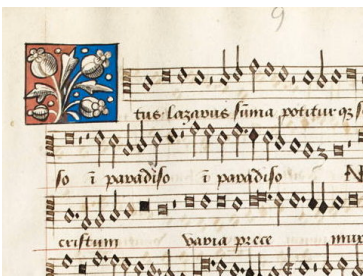 9
tus lazarus suma potitur qz s
so i paradiso i paradiso N
cristum varia prece mun